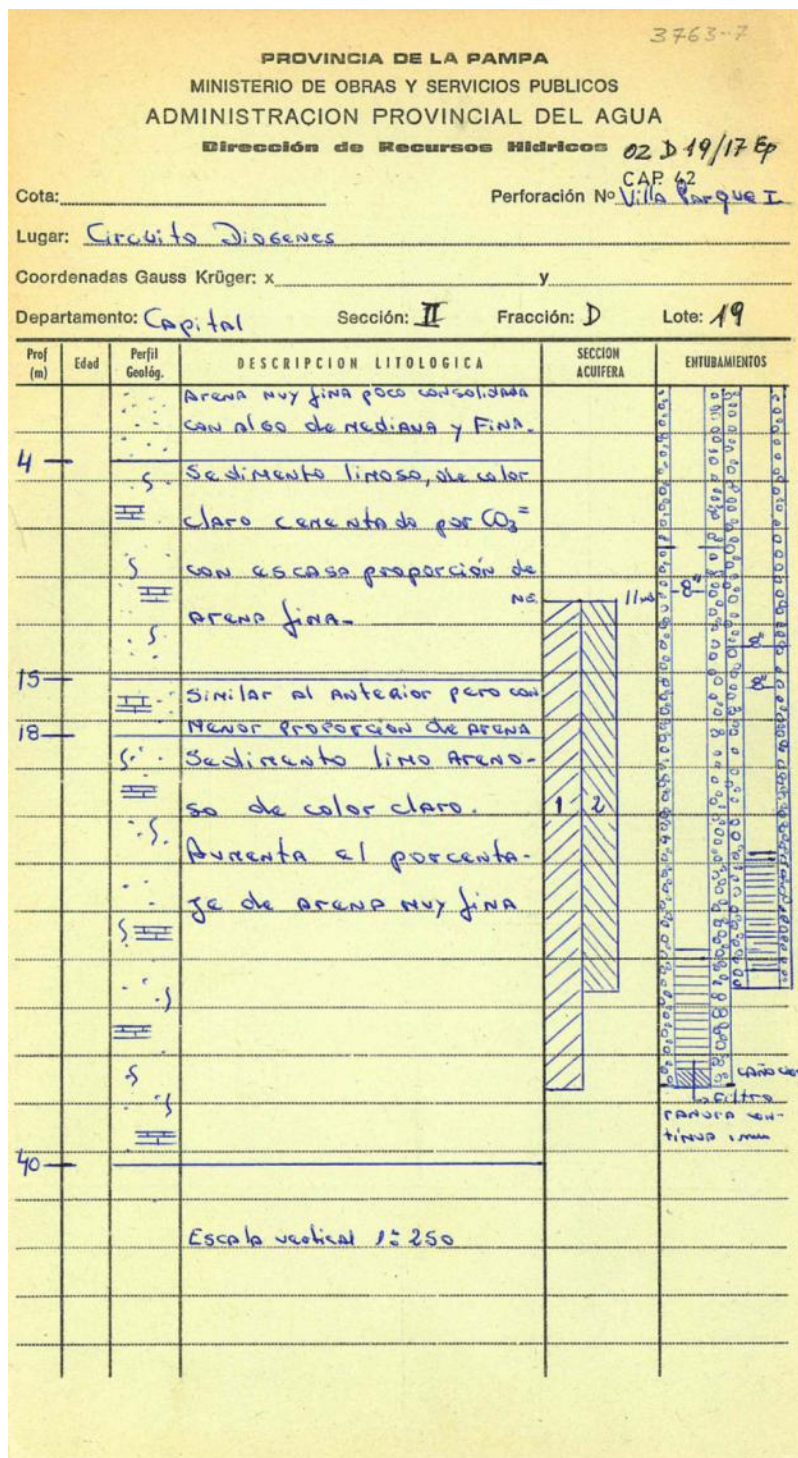 3763-7
PROVINCIA DE LA PAMPA
MINISTERIO DE OBRAS Y SERVICIOS PUBLICOS
ADMINISTRACION PROVINCIAL DEL AGUA
Dirección de Recursos Hídricos 02 D 19/17 Ep
CAP. 42
Cota: Perforación No Villa Parque I
Lugar: Circuito Diogenes
Coordenadas Gauss Krüger: x y
Departamento: Capital Sección: II Fracción: D Lote: 19
Prof (m) Edad Perfil Geológ. DESCRIPCION LITOLOGICA SECCION ACUIFERA ENTUBAMIENTOS
Arena muy fina poco consolidada
con algo de mediana y fina.
4
Sedimento limoso, de color
claro cementado por CO3=
con escasa proporción de
N.E. 11 8"
arena fina.
8"
15
8"
Similar al anterior pero con
menor proporción de arena
18
Sedimento limo areno-
so de color claro. 1 2
Aumenta el porcenta-
je de arena muy fina
caño
Filtro
ranura con-
tinua 1 mm
40
Escala vertical 1:250